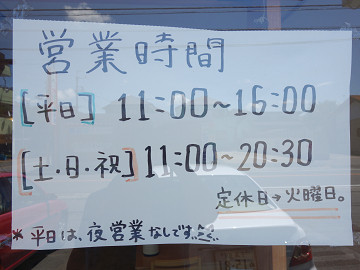 営業時間
[平日] 11:00~16:00
[土・日・祝] 11:00~20:30
定休日→火曜日。
* 平日は、夜営業なしです